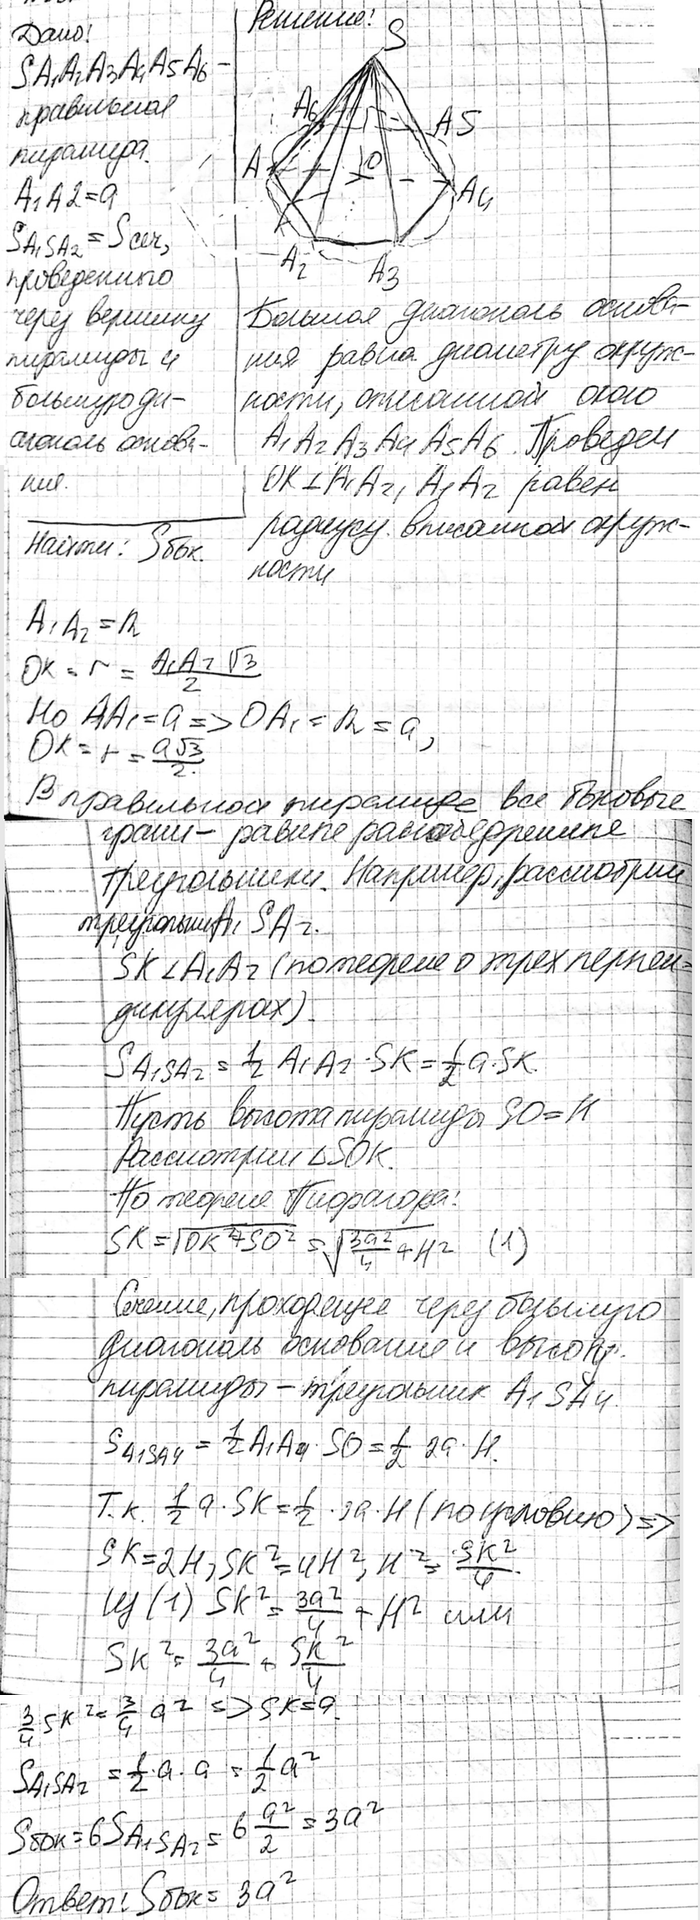 Дано:
SA1A2A3A4A5A6 –
правильная
пирамида.
A1A2=a
SA1SA2=Sсеч,
проведенного
через вершину
пирамиды и
большую ди-
агональ основа-
ния.
Найти: Sбок.
Решение:
S
A6
A5
A
O
A4
K
A2
A3
Большая диагональ основа-
ния равна диаметру окруж-
ности, описанной около
A1A2A3A4A5A6. Проведем
OK⊥A1A2, A1A2 равен
радиусу вписанной окруж-
ности
A1A2=R
OK=r=A1A2√3/2
Но AA1=a=>OA1=R=a,
OK=r=a√3/2.
В правильной пирамиде все боковые
грани – равные равнобедренные
треугольники. Например, рассмотрим
треугольник A1SA2.
SK⊥A1A2 (по теореме о трех перпен-
дикулярах).
SA1SA2=1/2 A1A2·SK=1/2 a·SK.
Пусть высота пирамиды SO=H
Рассмотрим △SOK.
По теореме Пифагора:
SK=√OK²+SO²=√3a²/4+H² (1)
Сечение, проходящее через большую
диагональ основание и высоту
пирамиды – треугольник A1SA4.
SA1SA4=1/2 A1A4·SO=1/2 2a·H.
Т.к. 1/2 a·SK=1/2·2a·H (по условию) =>
SK=2H, SK²=4H², H²=SK²/4.
Из (1) SK²=3a²/4+H² или
SK²=3a²/4+SK²/4
3/4 SK²=3/4 a² => SK=a.
SA1SA2=1/2·a·a=1/2 a²
Sбок=6SA1SA2=6 a²/2=3a²
Ответ: Sбок=3a²